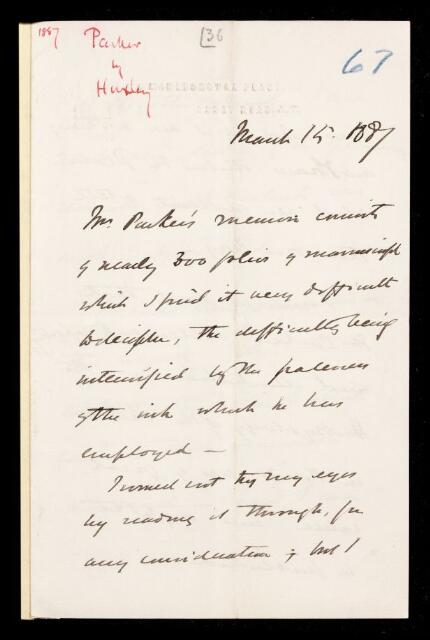 1887
Parker
by
Huxley
36
67
March 15. 1887
Mr. Parker's memoir consists
of nearly 300 folios of manuscript
which I find it very difficult
to decipher, the difficulty being
intensified by the paleness
of the ink which he has
employed —
I would not try my eyes
by reading it through, for
any consideration; but I